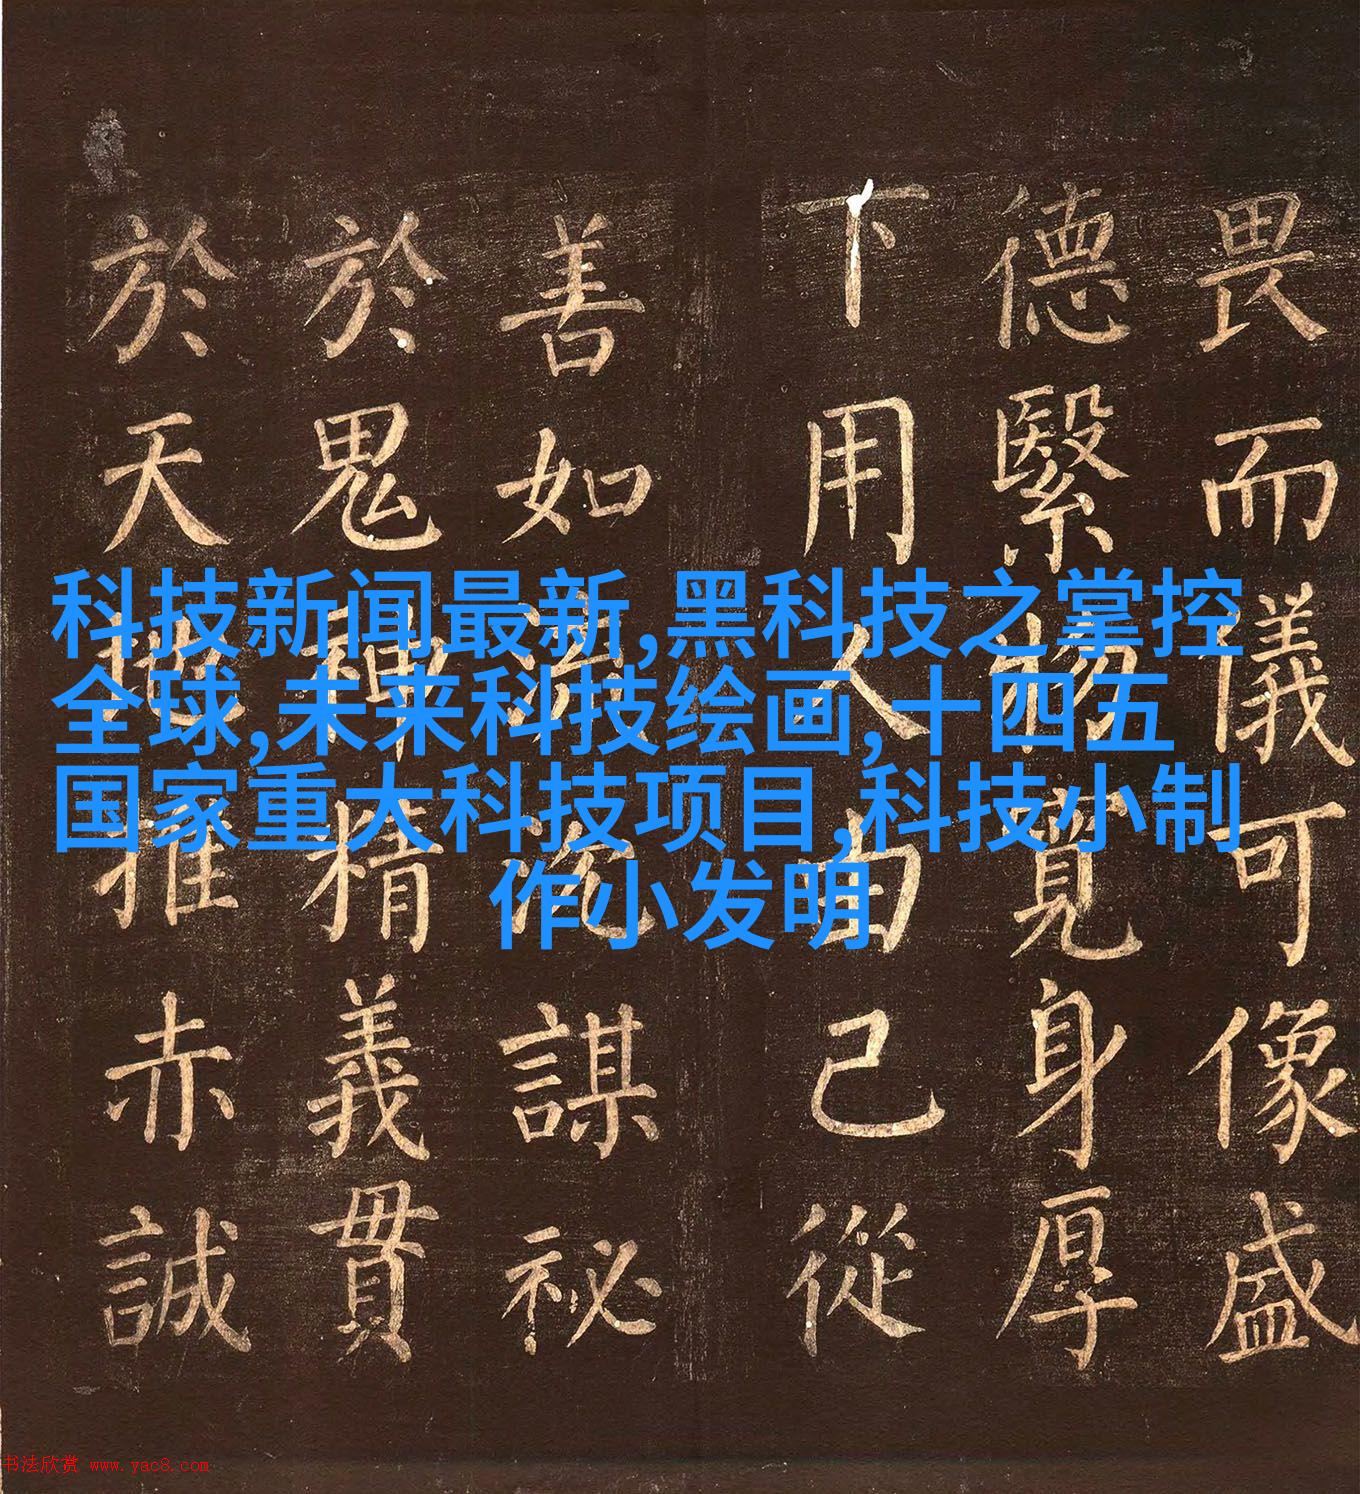 畏而儀可像盛
德繄物覽身厚
下用人由己從
善如流浚謀祕
於鬼神精義貫
於天地推赤誠
科技新闻最新,黑科技之掌控
全球,未来科技绘画,十四五
国家重大科技项目,科技小制
作小发明
书法欣赏 www.yac8.com